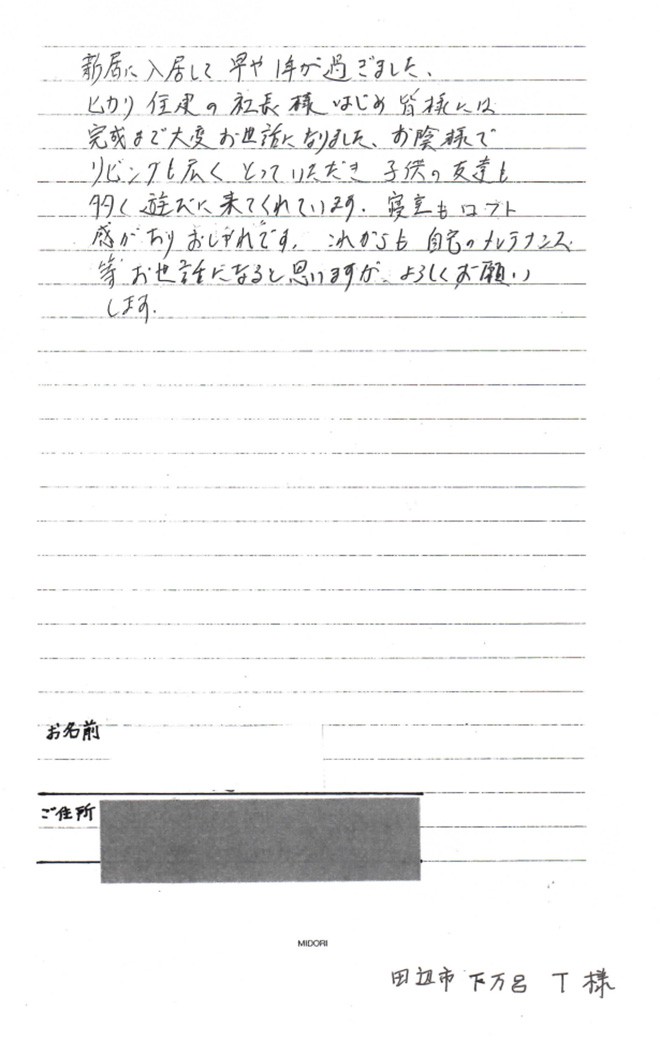 新居に入居して早や1年が過ぎました。
ヒカリ住建の社長様はじめ皆様には
完成まで大変お世話になりました、お陰様で
リビングも広くとっていただき子供の友達も
多く遊びに来てくれています。寝室もロフト
感がありおしゃれです。これからも自宅のメンテナンス
等お世話になると思いますが、よろしくお願い
します。
お名前
ご住所
MIDORI
田辺市下万呂 T様